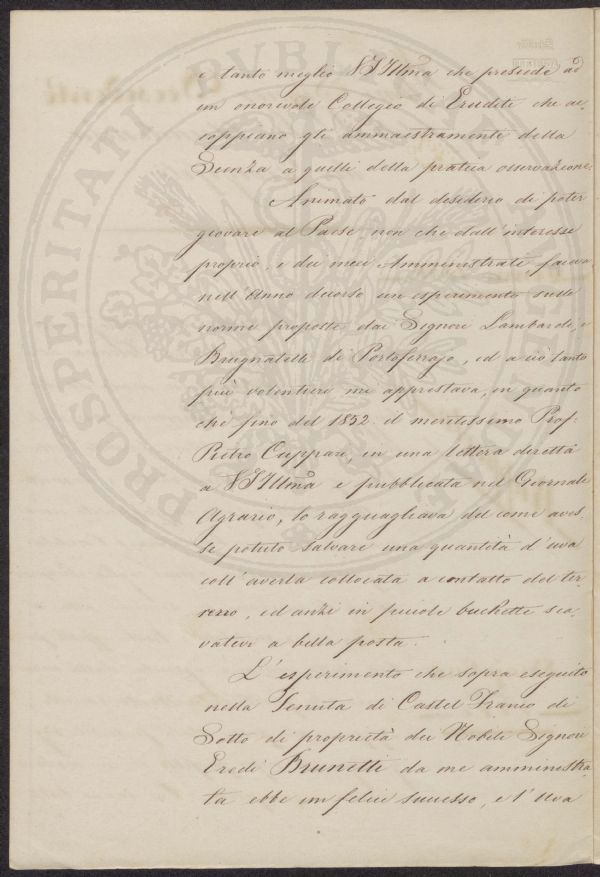 e tanto meglio V S Illma che presiede ad
un onorevole Collegio di Eruditi che ac-
coppiano gli ammaestramenti della
Scenza a quelli della pratica osservazione.
Animato dal desiderio di poter
giovare al Paese non che dall'interesse
proprio, e dei miei Amministrati, faceva
nell'Anno decorso un esperimento sulle
norme proposte dai Signori Lambardi, e
Brugnatelli di Portoferrajo, ed a ciò tanto
più volentieri mi apprestava, in quanto
chè fino del 1852 il meritissimo Prof:
Pietro Cuppari, in una lettera diretta
a V S Illma e pubblicata nel Giornale
Agrario, lo ragguagliava del come aves-
se potuto salvare una quantità d'uva
coll'averla collocata a contatto del ter-
reno, ed anzi in piccole buchette sca-
vatevi a bella posta.
L'esperimento che sopra eseguito
nella Tenuta di Castel Franco di
Sotto di proprietà dei Nobili Signori
Eredi Brunetti da me amministra-
ta ebbe un felice successo, e l'Uva
PROSPERITATI PVBLICAE